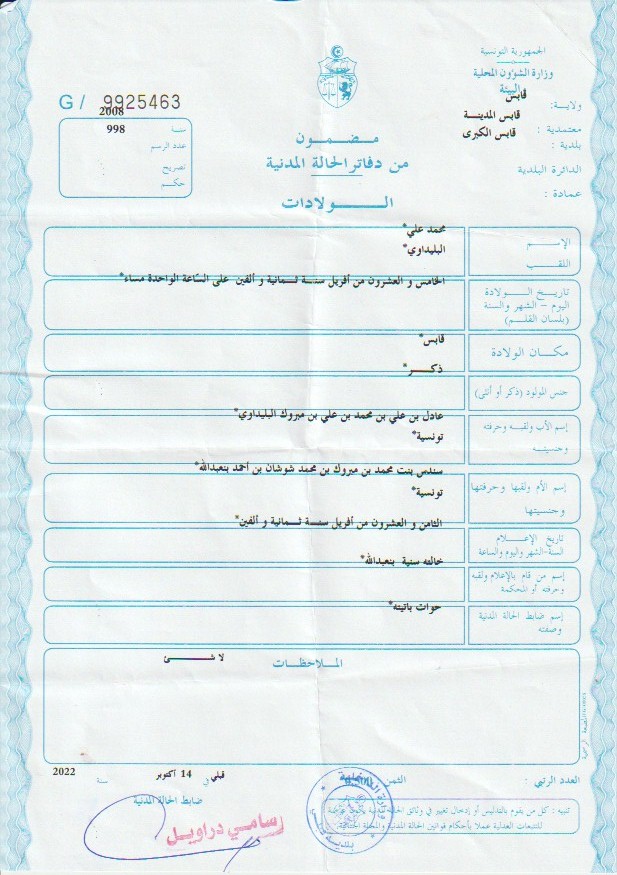 الجمهورية التونسية
وزارة الشؤون المحلية
والبيئة
ولاية : قابس
معتمدية : قابس المدينة
بلدية : قابس الكبرى
الدائرة البلدية
عمادة :
G / 9925463
سنة 2008
عدد الرسم 998
تصريح
حكم
مضمون
من دفاتر الحالة المدنية
الولادات
الإسم محمد علي*
اللقب البليداوي*
تاريخ الولادة
اليوم - الشهر والسنة
(بلسان القلم)
الخامس و العشرون من أفريل سنة ثمانية و ألفين على الساعة الواحدة مساء*
مكان الولادة قابس*
جنس المولود (ذكر أو أنثى) ذكر*
إسم الأب ولقبه وحرفته عادل بن علي بن محمد بن علي بن مبروك البليداوي*
وجنسيته تونسية*
إسم الأم ولقبها وحرفتها سندس بنت محمد بن مبروك بن محمد شوشان بن أحمد بنعبدالله*
وجنسيتها تونسية*
تاريخ الإعلام
السنة-الشهر واليوم والساعة
الثامن و العشرون من أفريل سنة ثمانية و ألفين*
إسم من قام بالإعلام ولقبه
وحرفته أو المحكمة
خالته سنية بنعبدالله*
إسم ضابط الحالة المدنية
وصفته
حوات باتيته*
الملاحظات
لا شئ
العدد الرتبي : الثمن
قبلي في 14 أكتوبر سنة 2022
ضابط الحالة المدنية
سامي دراويل
تنبيه : كل من يقوم بالتدليس أو إدخال تغيير في وثائق الحالة المدنية
للتتبعات العدلية عملا بأحكام قوانين الحالة المدنية والمجلة الجنائية